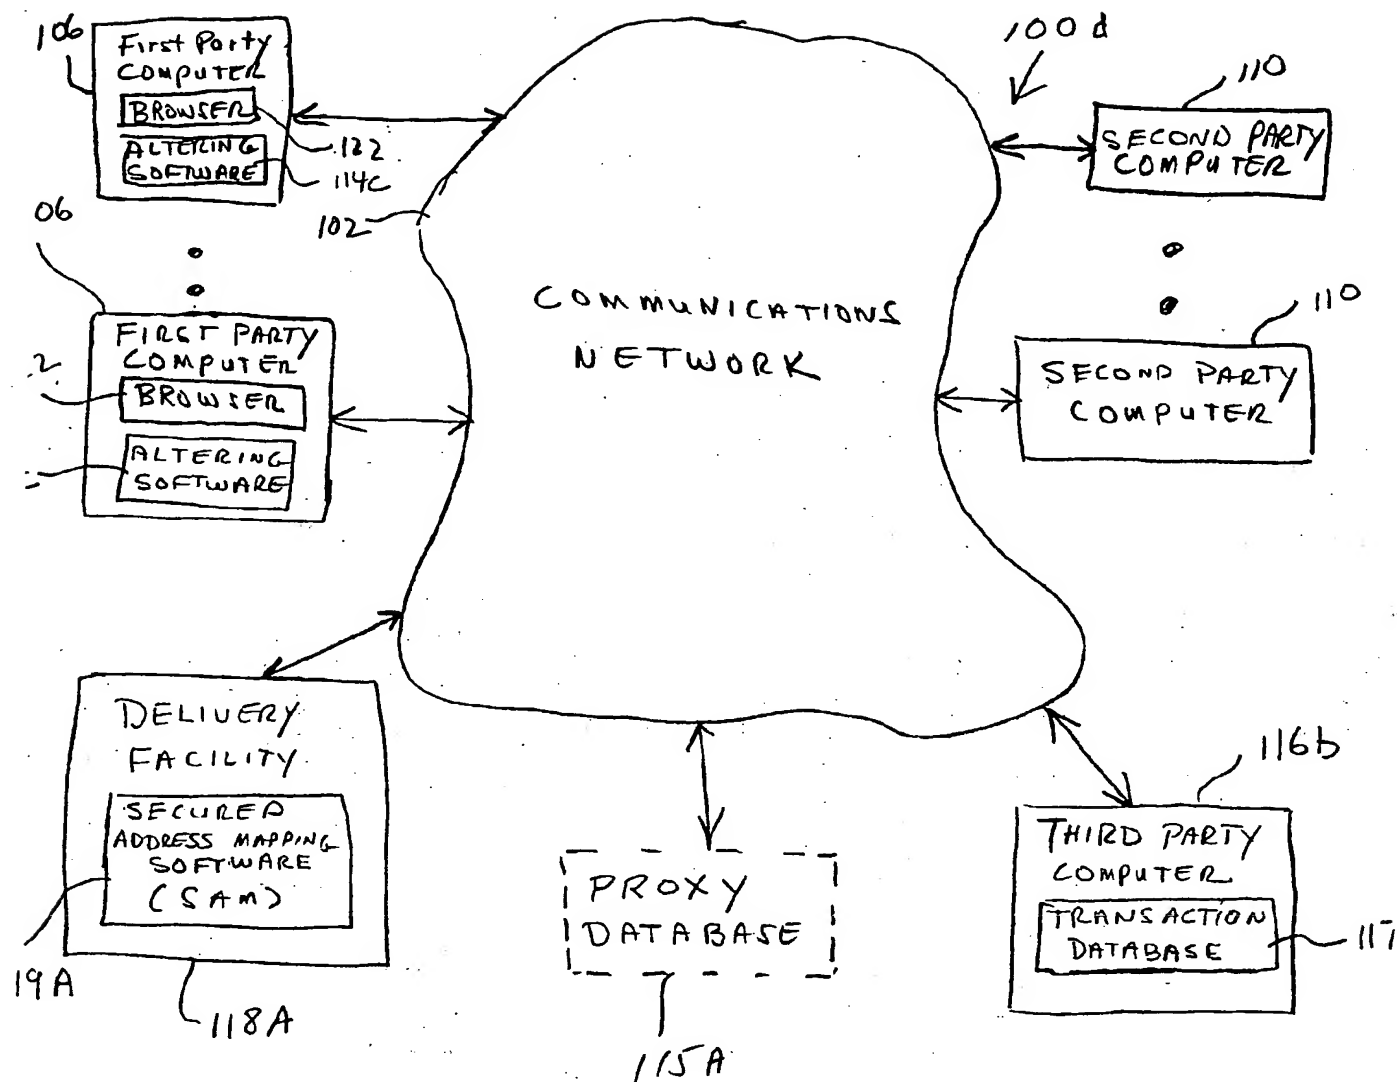 106
First Party
COMPUTER
BROWSER
ALTERING
SOFTWARE
122
114c
102
100d
110
SECOND PARTY
COMPUTER
06
FIRST PARTY
COMPUTER
2
BROWSER
ALTERING
SOFTWARE
COMMUNICATIONS
NETWORK
110
SECOND PARTY
COMPUTER
DELIVERY
FACILITY
SECURED
ADDRESS MAPPING
SOFTWARE
(SAM)
19A
118A
PROXY
DATABASE
115A
116b
THIRD PARTY
COMPUTER
TRANSACTION
DATABASE
117